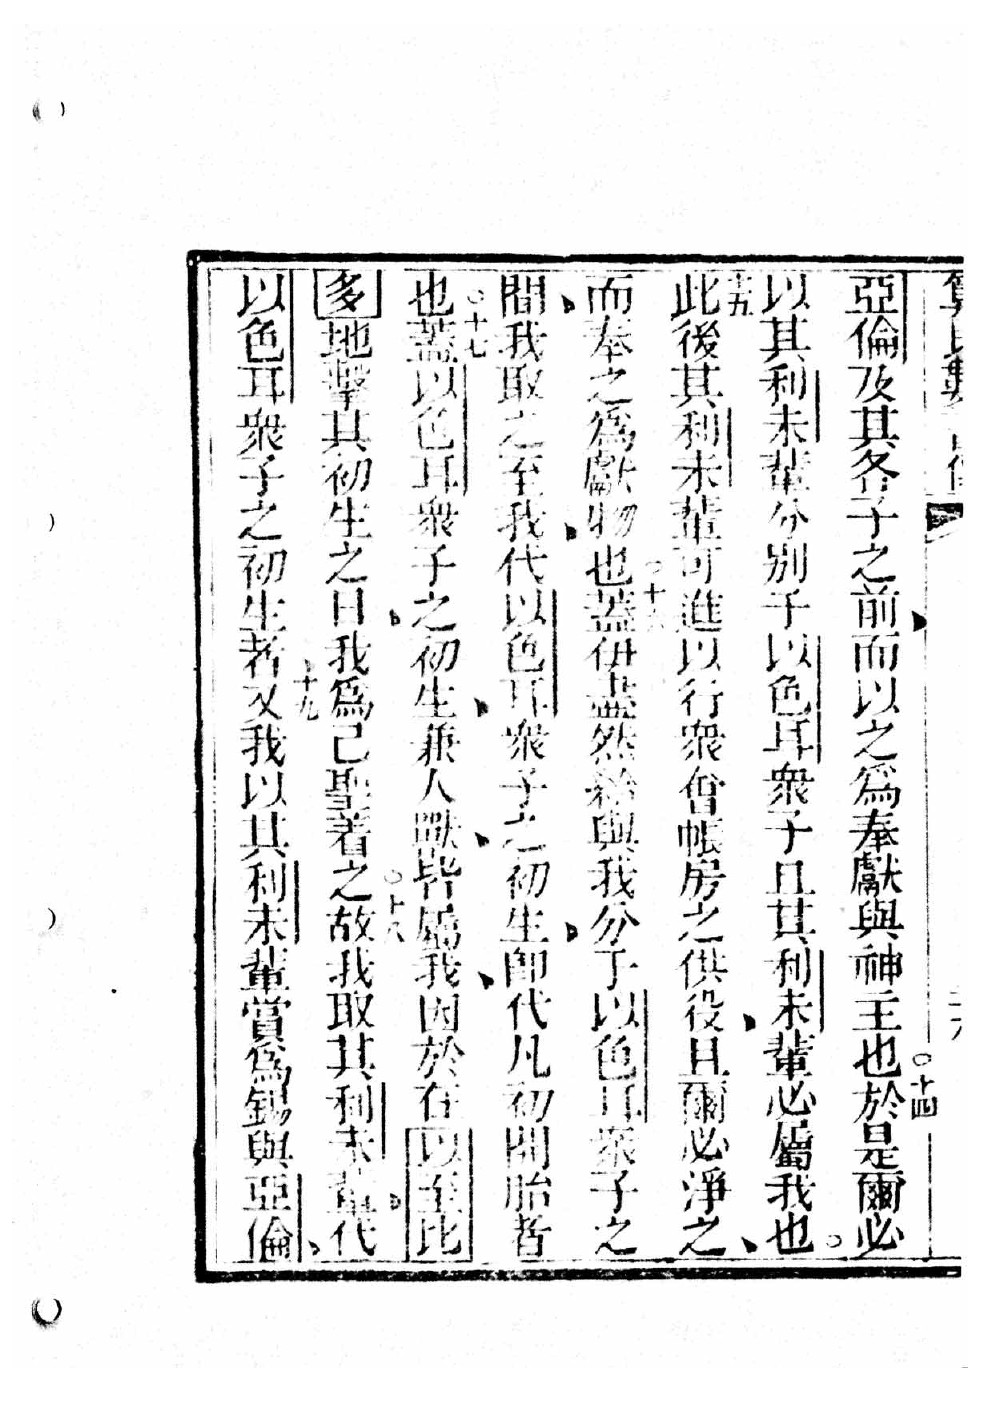 亞倫及其各子之前而以之爲奉獻與神主也○十四於是爾必
以其利未輩分別于以色耳衆子且其利未輩必屬我也○
十五此後其利未輩可進以行衆會帳房之供役且爾必淨之
而奉之爲獻物也○十六蓋伊盡然給與我分于以色耳衆子之
間我取之至我代以色耳衆子之初生卽代凡初開胎者
也○十七蓋以色耳衆子之初生兼人獸皆屬我因於在以至比
多地擊其初生之日我爲己聖着之故○十八我取其利未輩代
以色耳衆子之初生者十九又我以其利未輩賞爲錫與亞倫